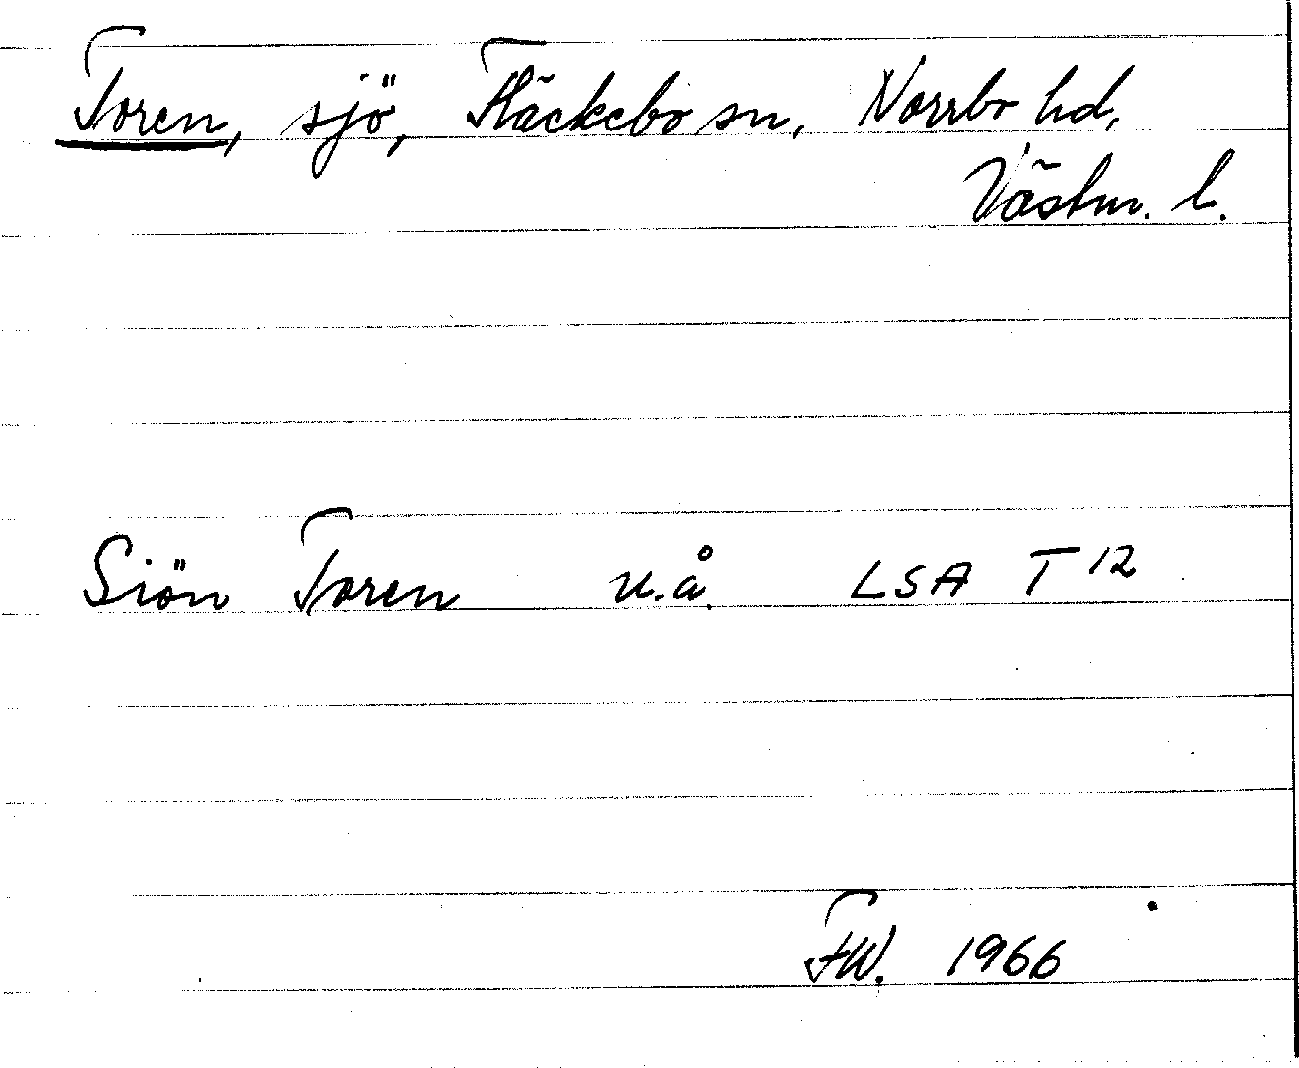 Toren, sjö, Fläckebo sn, Norrbo hd,
Västm. l.
Siön Toren u.å. LSA T 12
FW. 1966